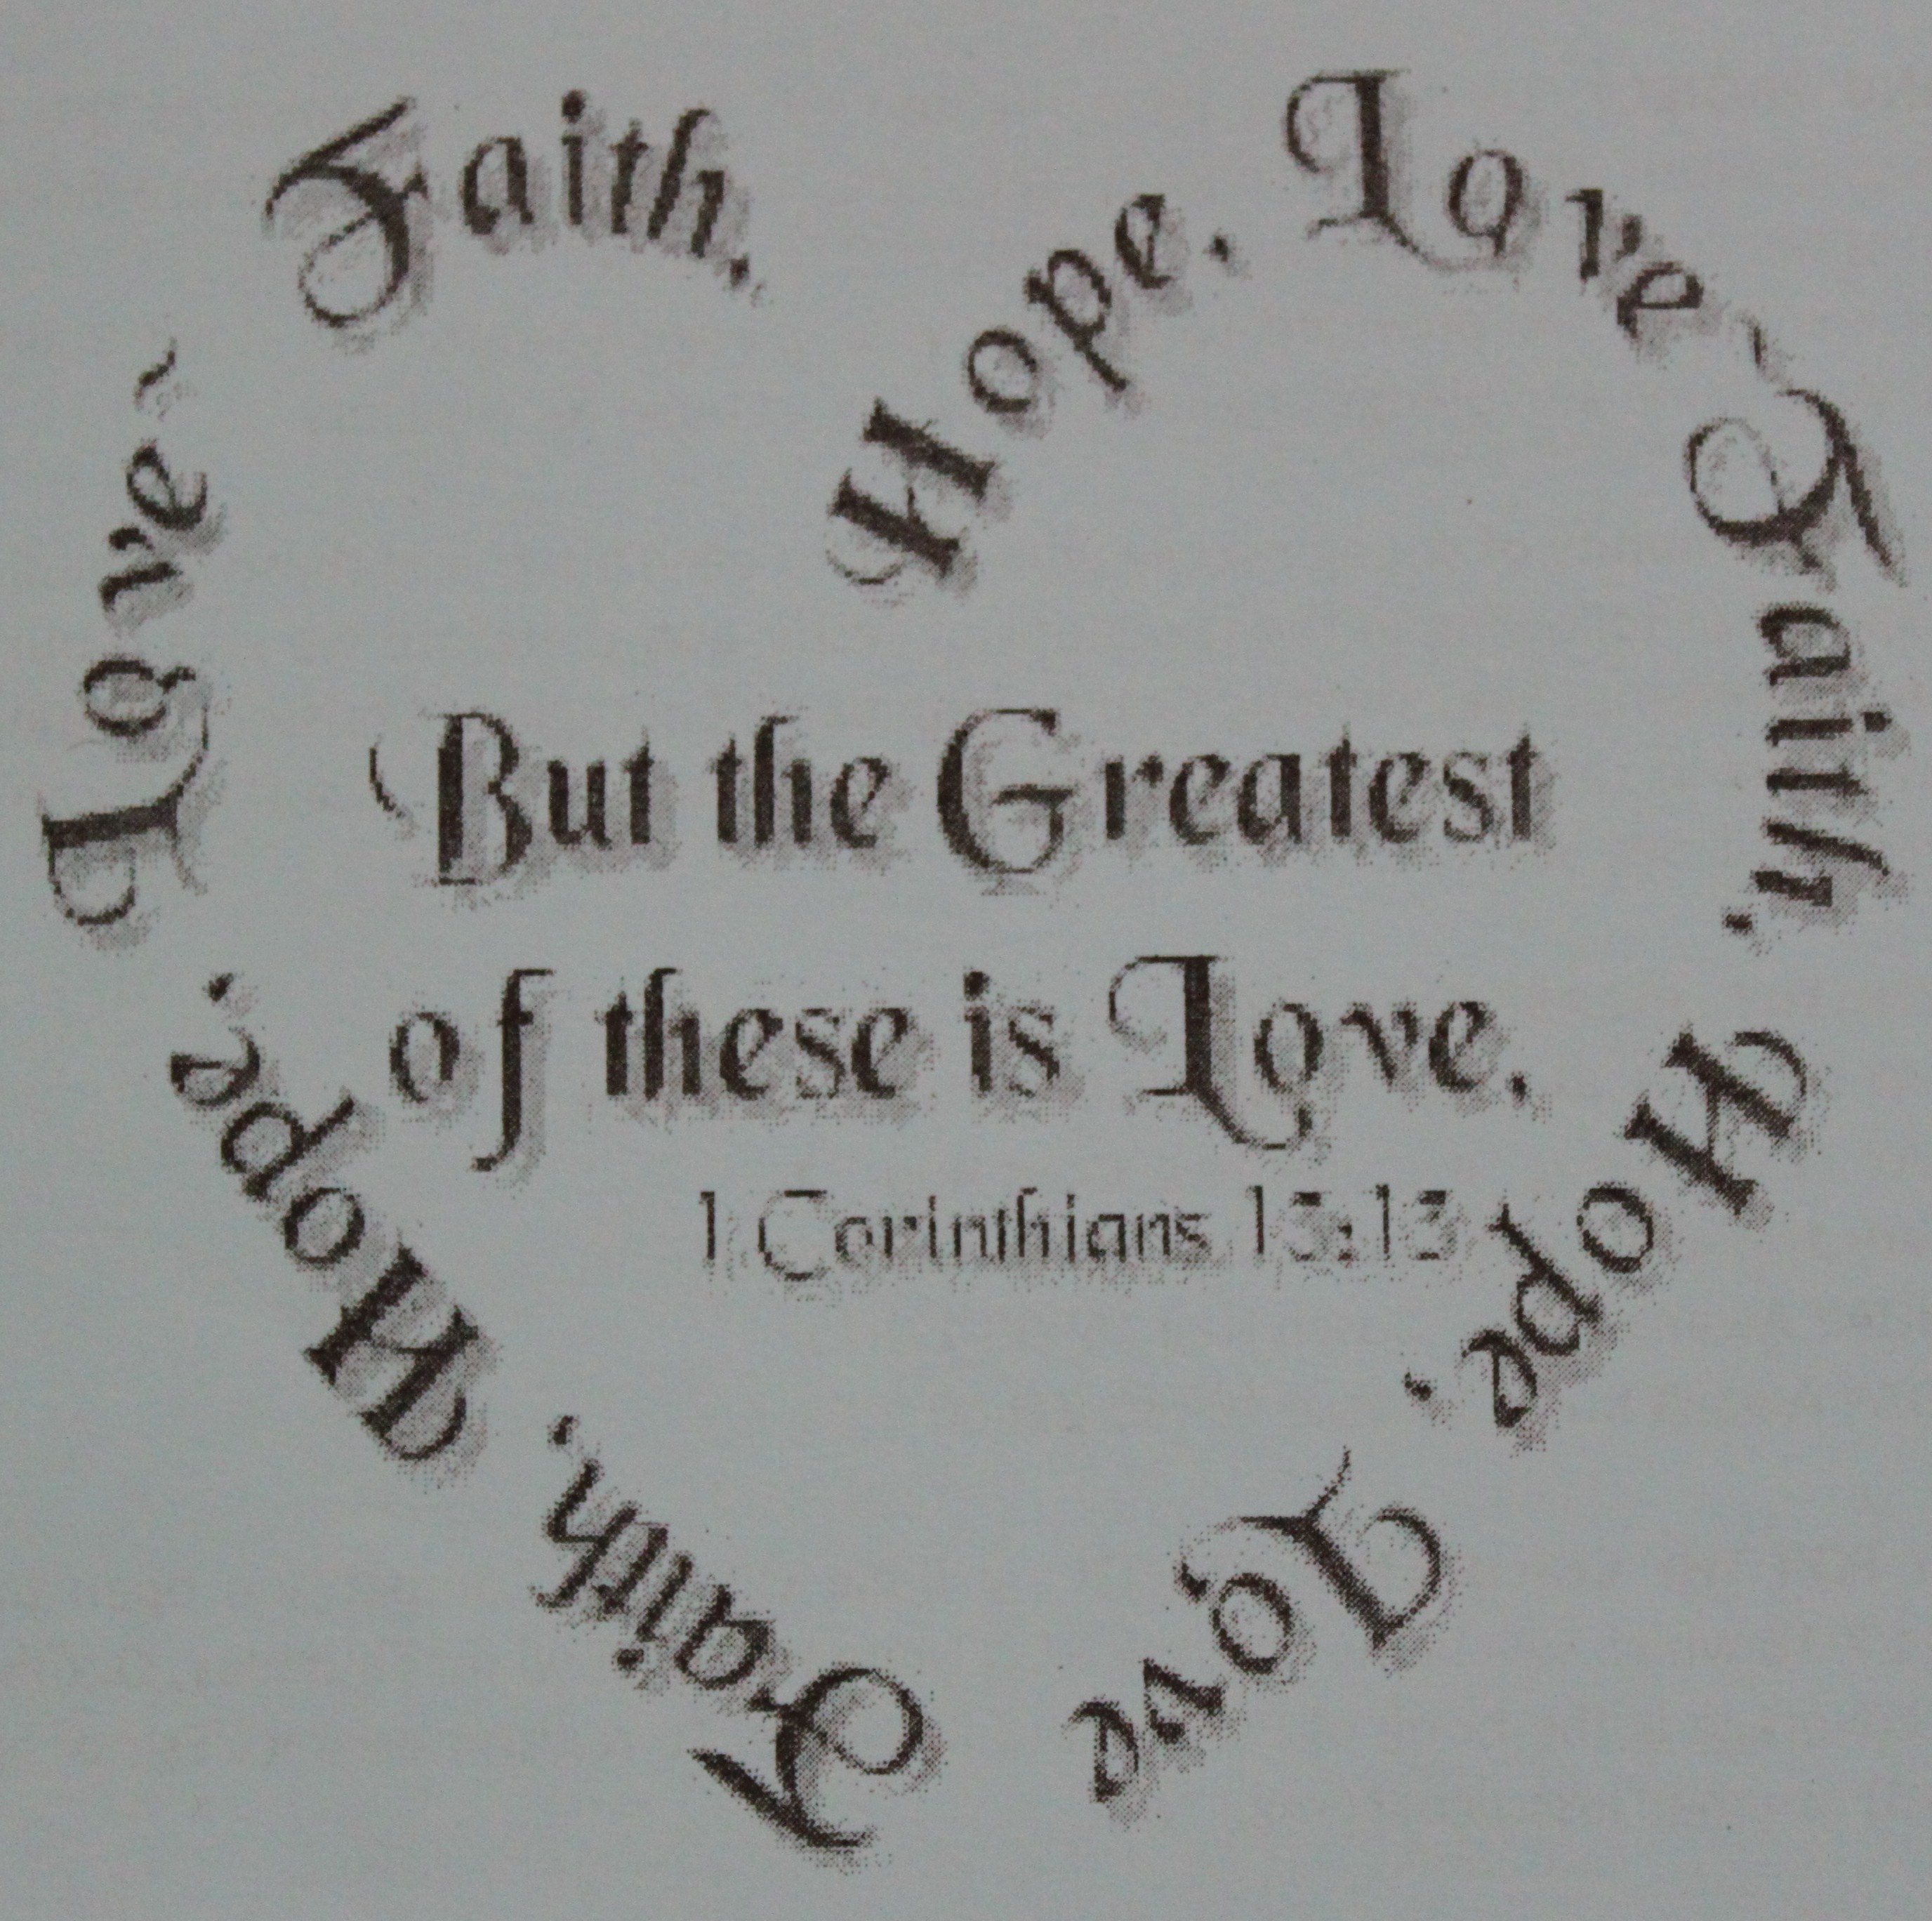 Faith, Hope, Love ~ Faith, Hope, Love
Faith, Hope, Love ~
But the Greatest
of these is Love.
1 Corinthians 13:13